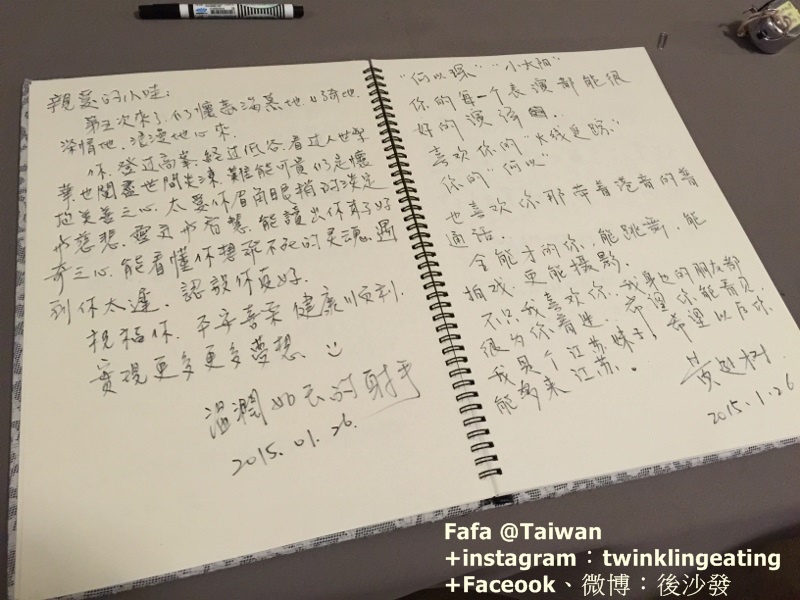 親愛的小哇：
第五次來了，仍懷著滿慕地、好奇地、
深情地、浪漫地心來。
你，登过高峯、經过低谷、看过人世學
華也閱盡世間炎涼，難能可貴仍是懷
抱美善之心。太愛你眉角眼梢的淡定
也慈悲、靈氣也智慧，能讀出你有了好
奇之心，能看懂你想飛不死的灵魂。遇
到你太遲，認識你真好。
祝福你，平安喜樂、健康順利，
實現更多更多夢想。
溫潤如云的射手
2015.01.26.
“何以琛”“小太阳”
你的每一个表演都能很
好的演译
喜欢你的“火线追踪”
你的“何以”
也喜欢你那带着港音的普
通话。
全能才的你，能跳舞，能
拍戏，更能摄影。
不只我喜欢你，我身边的朋友都
很为你着迷。希望你能看见
我是个江苏妹子，希望以后你
能多来江苏。
2015.1.26
Fafa @Taiwan
+instagram：twinklingeating
+Faceook、微博：後沙發